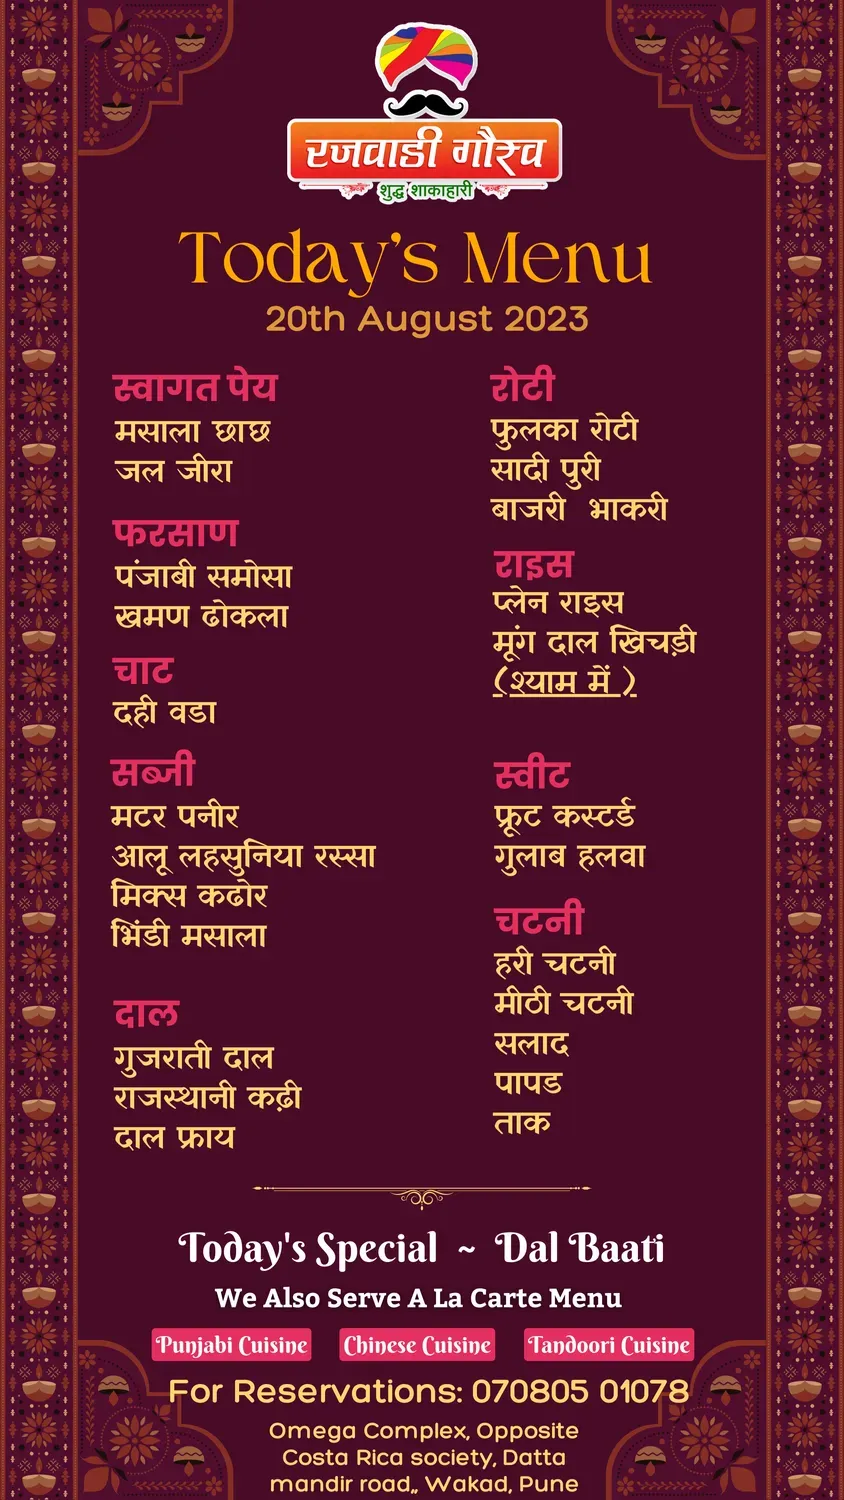 रजवाडी गौरव
शुद्ध शाकाहारी
Today's Menu
20th August 2023
स्वागत पेय
मसाला छाछ
जल जीरा
फरसाण
पंजाबी समोसा
खमण ढोकला
चाट
दही वडा
सब्जी
मटर पनीर
आलू लहसुनिया रस्सा
मिक्स कढोर
भिंडी मसाला
दाल
गुजराती दाल
राजस्थानी कढ़ी
दाल फ्राय
रोटी
फुलका रोटी
सादी पुरी
बाजरी भाकरी
राइस
प्लेन राइस
मूंग दाल खिचड़ी
(श्याम में )
स्वीट
फ्रूट कस्टर्ड
गुलाब हलवा
चटनी
हरी चटनी
मीठी चटनी
सलाद
पापड
ताक
Today's Special ~ Dal Baati
We Also Serve A La Carte Menu
Punjabi Cuisine Chinese Cuisine Tandoori Cuisine
For Reservations: 070805 01078
Omega Complex, Opposite
Costa Rica society, Datta
mandir road,, Wakad, Pune